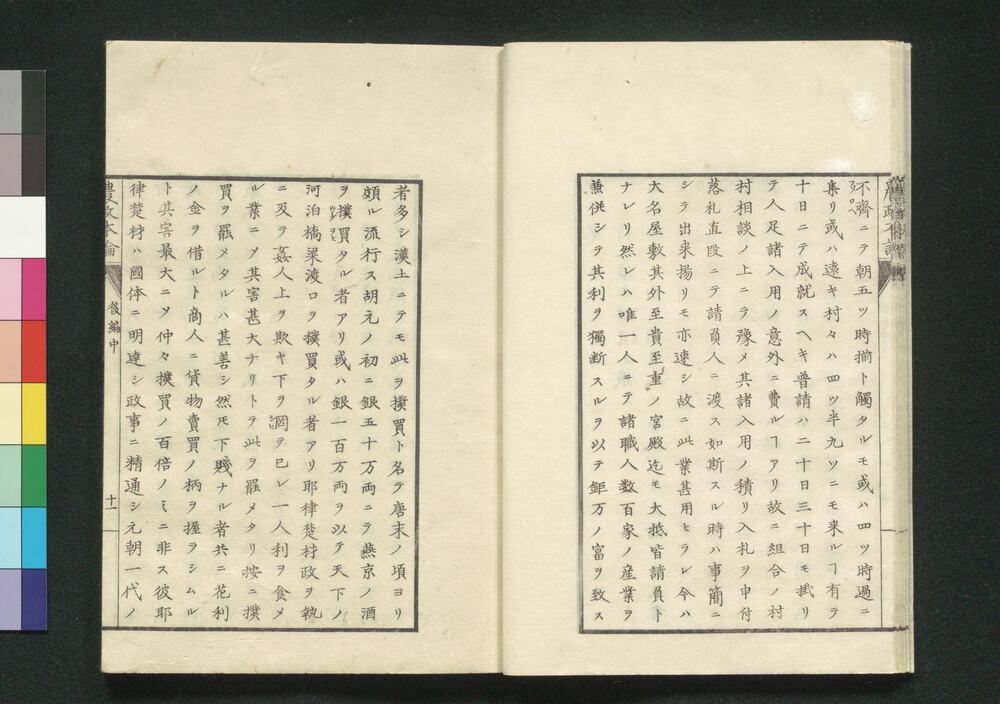 不齊ニテ朝五ツ時揃ト觸タルモ或ハ四ツ時過ニ
集リ或ハ遠キ村々ハ四ツ半九ツニモ来ルヿ有テ
十日ニテ成就スヘキ普請ハ二十日三十日モ掛リ
テ人足諸入用ノ意外ニ費ルヿアリ故ニ組合ノ村
村相談ノ上ニテ豫メ其諸入用ノ積リ入札ヲ申付
落札直段ニテ請負人ニ渡ス如斯スル時ハ事簡ニ
シテ出来揚リモ亦速シ故ニ此業甚用ヒラレ今ハ
大名屋敷其外至貴至重ノ宮殿迄モ大抵皆請負ト
ナレリ然レハ唯一人ニテ諸職人数百家ノ産業ヲ
兼併シテ其利ヲ獨断スルヲ以テ鉅万ノ富ヲ致ス
者多シ漢土ニテモ此ヲ撲買ト名テ唐末ノ頃ヨリ
頗ル流行ス胡元ノ初ニ銀五十万両ニテ燕京ノ酒
ヲ撲買タル者アリ或ハ銀一百万両ヲ以テ天下ノ
河泊橋梁渡口ヲ撲買タル者アリ耶律楚材政ヲ執
ニ及テ姦人上ヲ欺キ下ヲ罔ヲ已レ一人利ヲ食メ
ル業ニソ其害甚大ナリトテ此ヲ罷メタリ按ニ撲
買ヲ罷メタルハ甚善シ然𪜈下賤ナル者共ニ花利
ノ金ヲ借ルト商人ニ貨物賣買ノ柄ヲ握ラシムル
ト其害最大ニソ仲々撲買ノ百倍ノミニ非ス彼耶
律楚材ハ國体ニ明達シ政事ニ精通シ元朝一代ノ
農政本論
後編中
十一